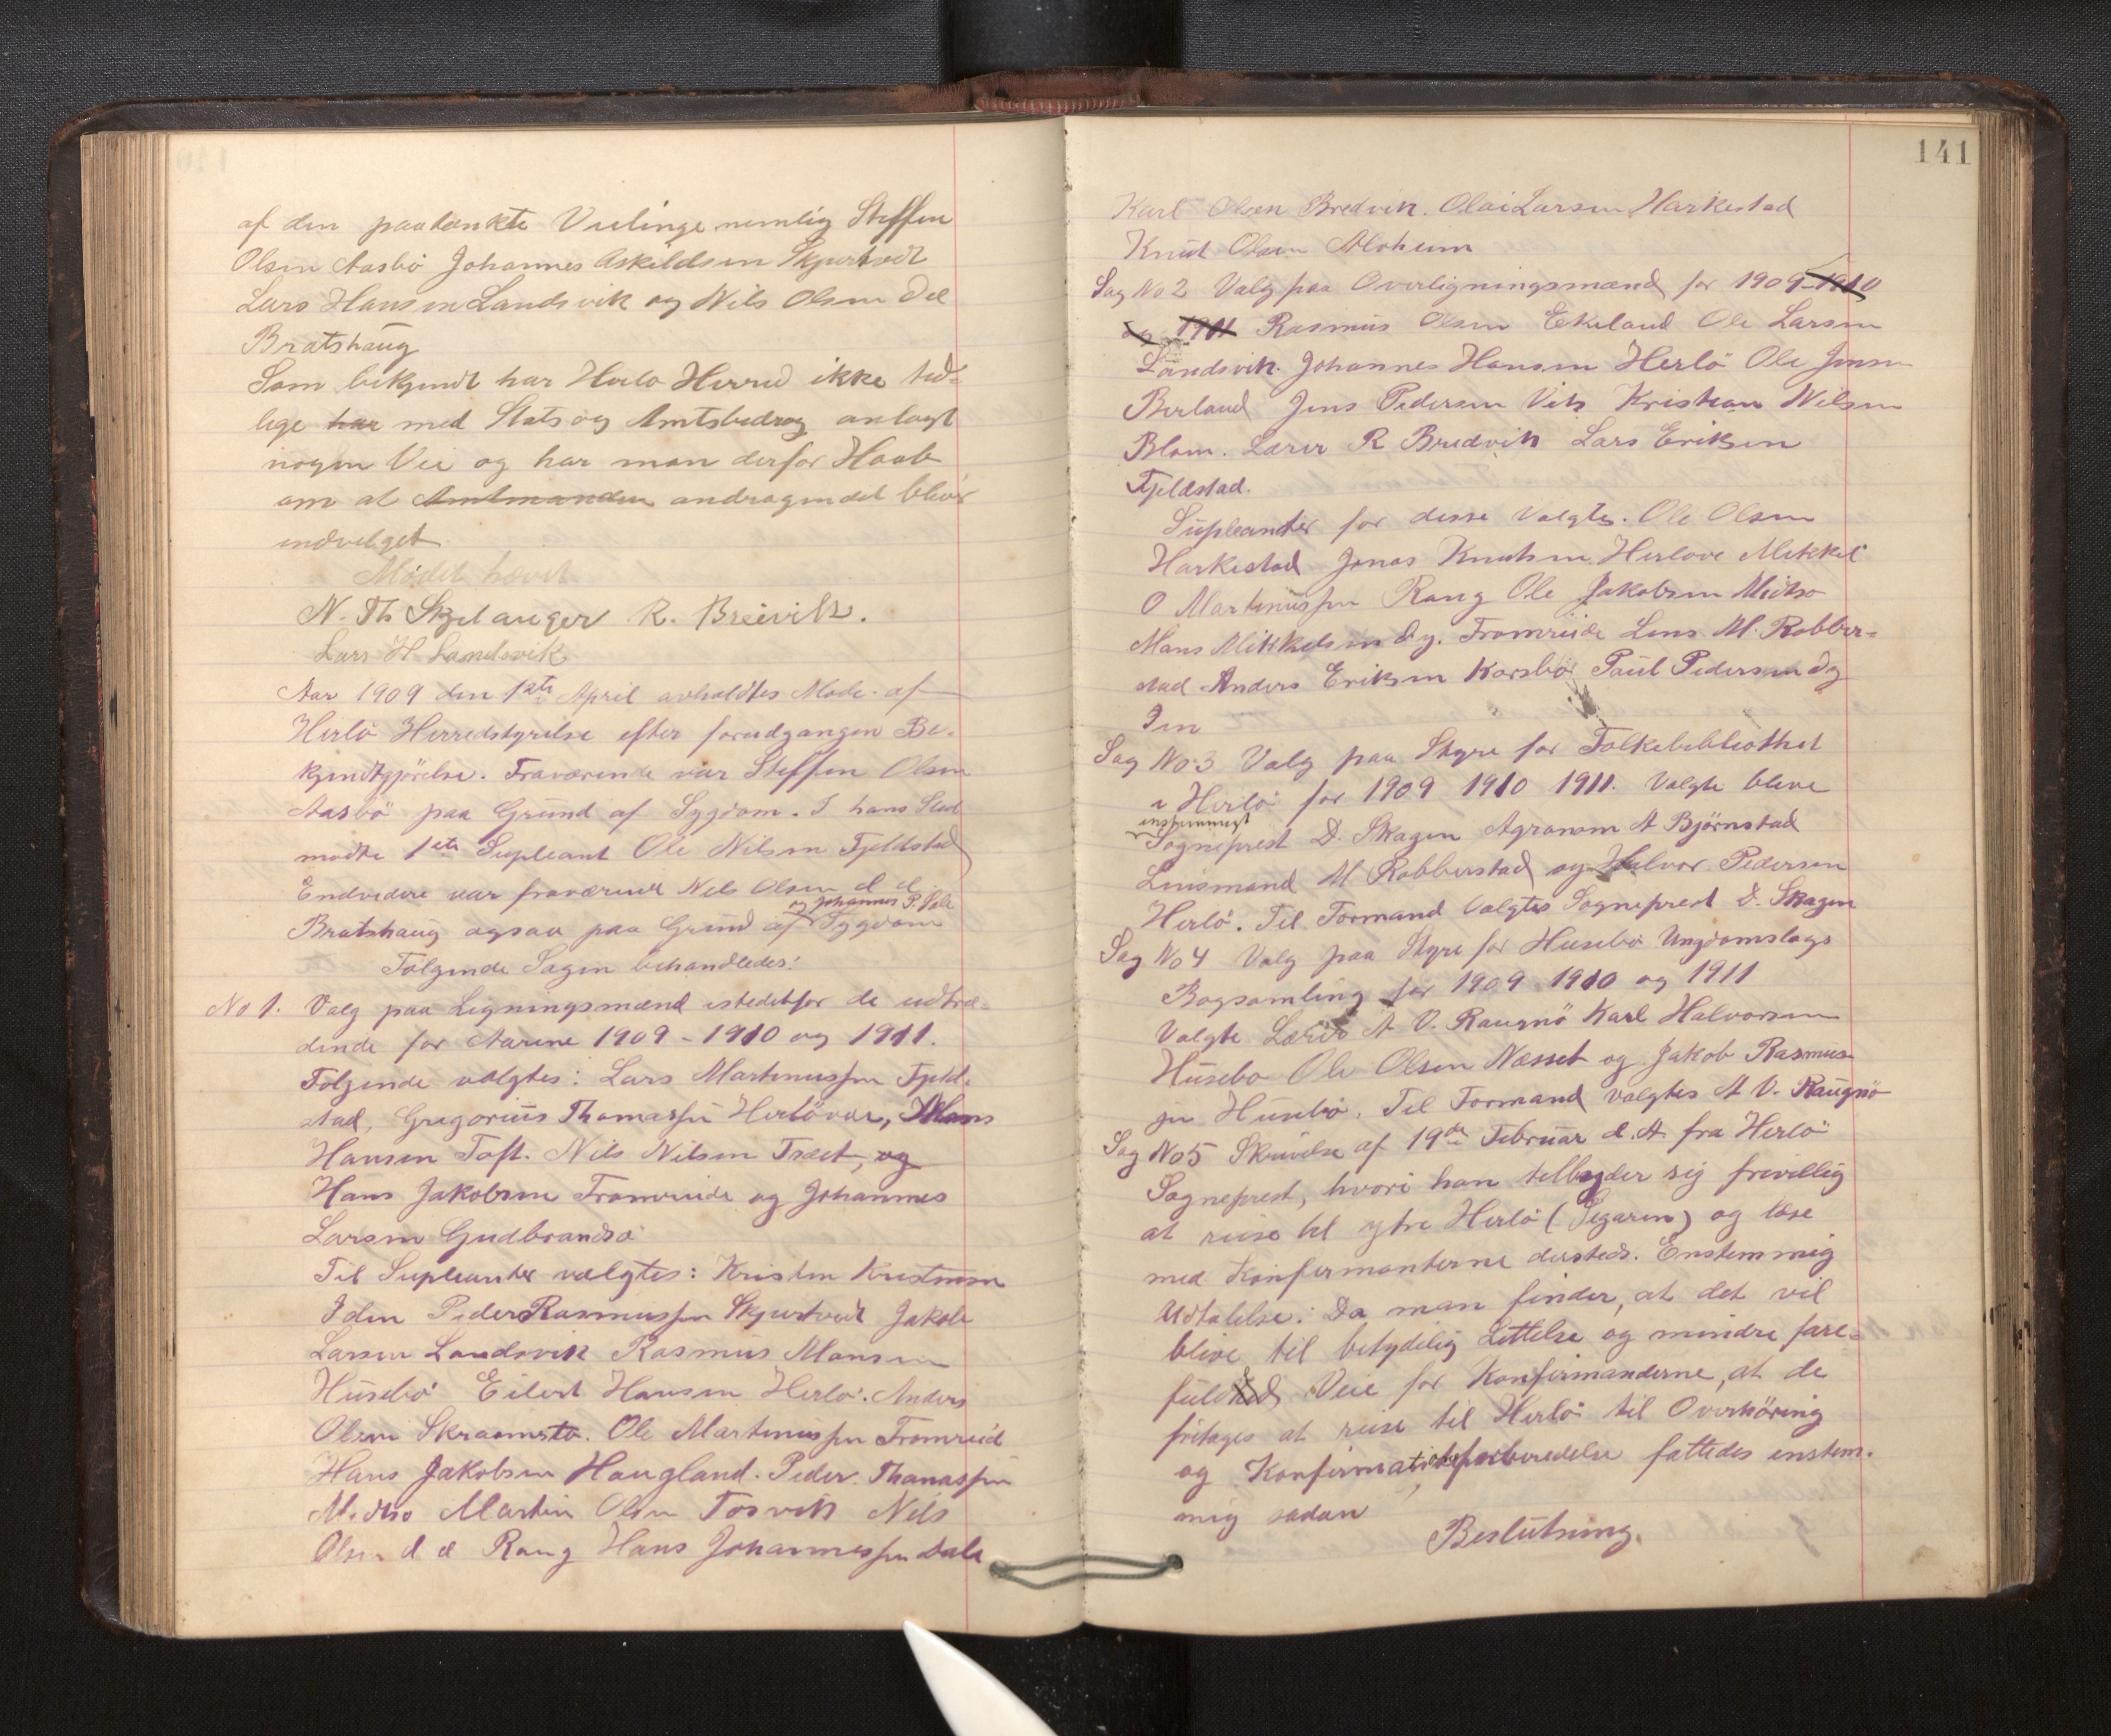 af den paatænkte Veilinge nemlig Steffen
Olsen Aasbö Johannes Askildsen Skjertvedt
Lars Hansen Landsvik og Nils Olsen Del
Bratshaug
Som bekjendt har Herlo Herred ikke tid-
lige har med Stats og Amtsbedrag anlagt
nogen Vei og har man derfor Haab
om at Amtmanden andragendet bliver
indvilget
Mødet hævet
N. Th Skjelanger R. Breivik.
Lars H Landsvik
Aar 1909 den 1ste April avholdtes Møde af
Herlö Herredstyrelse efter forudgangen Be-
kjendtgjörelse. Fraværende var Steffen Olsen
Aasbö paa Grund af Sygdom. I hans Sted
mødte 1ste Supleant Ole Nilsen Fjeldstad
Endvidere var fraværende Nils Olsen d e
og Johannes P.
Bratshaug ogsaa paa Grund af Sygdom
Følgende Sagen behandledes:
No 1. Valg paa Ligningsmænd istedetfor de udtræ-
dende for Aarene 1909 - 1910 og 1911.
Følgende valgtes: Lars Martinussen Fjeld-
stad, Gregorius Thomassen Herløvær, Mons
Hansen Toft. Nils Nilsen Træet, og
Hans Jakobsen Fromreide og Johannes
Larsen Gudbrandsö
Til Supleanter valgtes: Kristen Kristensen
Iden Peder Rasmussen Skjertvedt Jakob
Larsen Landsvik Rasmus Monsen
Husebö Eilert Hansen Herlö. Anders
Olsen Skraamestø. Ole Martinussen Fromreid
Hans Jakobsen Haugland. Peder Thomassen
Midtsø Martin Olsen Tosvik Nils
Olsen d e Rong Hans Johannessen Dale
141
Karl Olsen Bredvik. Olai Larsen Harkestad
Knut Olsen Alvheim
Sag No 2 Valg paa Overligningsmænd for 1909-1910
og 1911 Rasmus Olsen Ekeland Ole Larsen
Landsvik. Johannes Hansen Herlö Ole Jensen
Berland Jens Pedersen Vik Kristian Nilsen
Blom. Lærer R Bredvik Lars Eriksen
Fjeldstad.
Supleanter for disse Valgtes. Ole Olsen
Harkestad Jonas Knutsen Herløvæ Mikkel
O Martinussen Rong Ole Jakobsen Midtsø
Mons Mikkelsen d.y. Fromreide Lens. M. Robber-
stad Anders Eriksen Korsbö Paul Pedersen dy
Iden
Sag No 3 Valg paa Styre for Folkebibliothet
i Herlö for 1909 1910 1911. Valgte bleve
enstemmigt
Sogneprest D. Skagen Agronom A Björnstad
Lensmand M Robberstad og Halvor Pedersen
Herlö. Til Formand Valgtes Sogneprest D. Skagen
Sag No 4 Valg paa Styre for Husebö Ungdomslags
Bogsamling for 1909 1910 og 1911
Valgte Lærer A V. Raugnö Karl Halvorsen
Husebø Ole Olsen Næsset og Jakob Rasmus-
sen Husebö. Til Formand valgtes A V. Raugnö
Sag No 5 Skrivelse af 19de Februar d. A. fra Herlö
Sogneprest, hvori han tilbyder sig frivillig
at reise til ytre Herlö (Segaren) og læse
med Konfirmanterne dersteds. Enstemmig
Udtalelse: Da man finder, at det vil
blive til betydelig Lettelse og mindre fare-
fuld Veie for Konfirmanderne, at de
fritages at reise til Herlö til Overhöring
og Konfirmationsforberedelse fattedes enstem-
mig sadan
Beslutning.